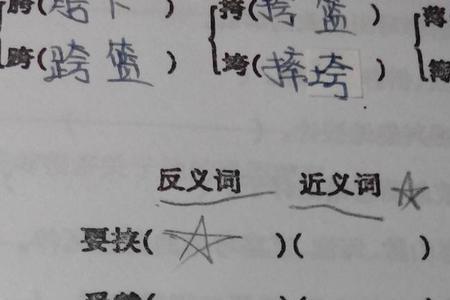 胯(胯下) 挎(挎篮) 薄
跨(跨篮) 垮(摔垮)
反义词 近义词
要挟( )( )